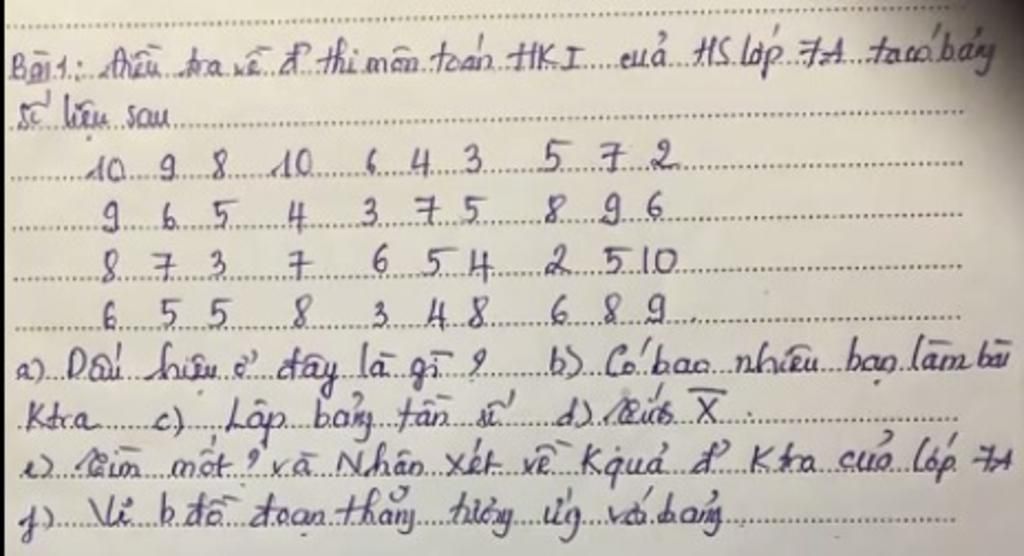 Bài 1: Điều tra về đ' thi môn toán HKI của HS lớp 7A ta có bảng
số liệu sau
10 9 8 10 6 4 3 5 7 2
9 6 5 4 3 7 5 8 9 6
8 7 3 7 6 5 4 2 5 10
6 5 5 8 3 4 8 6 8 9
a) Dấu hiệu ở đây là gì? b) Có bao nhiêu bạn làm bài
Ktra c) Lập bảng tần số d) Tính X̅
e) Tìm mốt? và Nhận xét về Kquả đ' Ktra của lớp 7A
f) Vẽ b đồ đoạn thẳng tương ứng với bảng